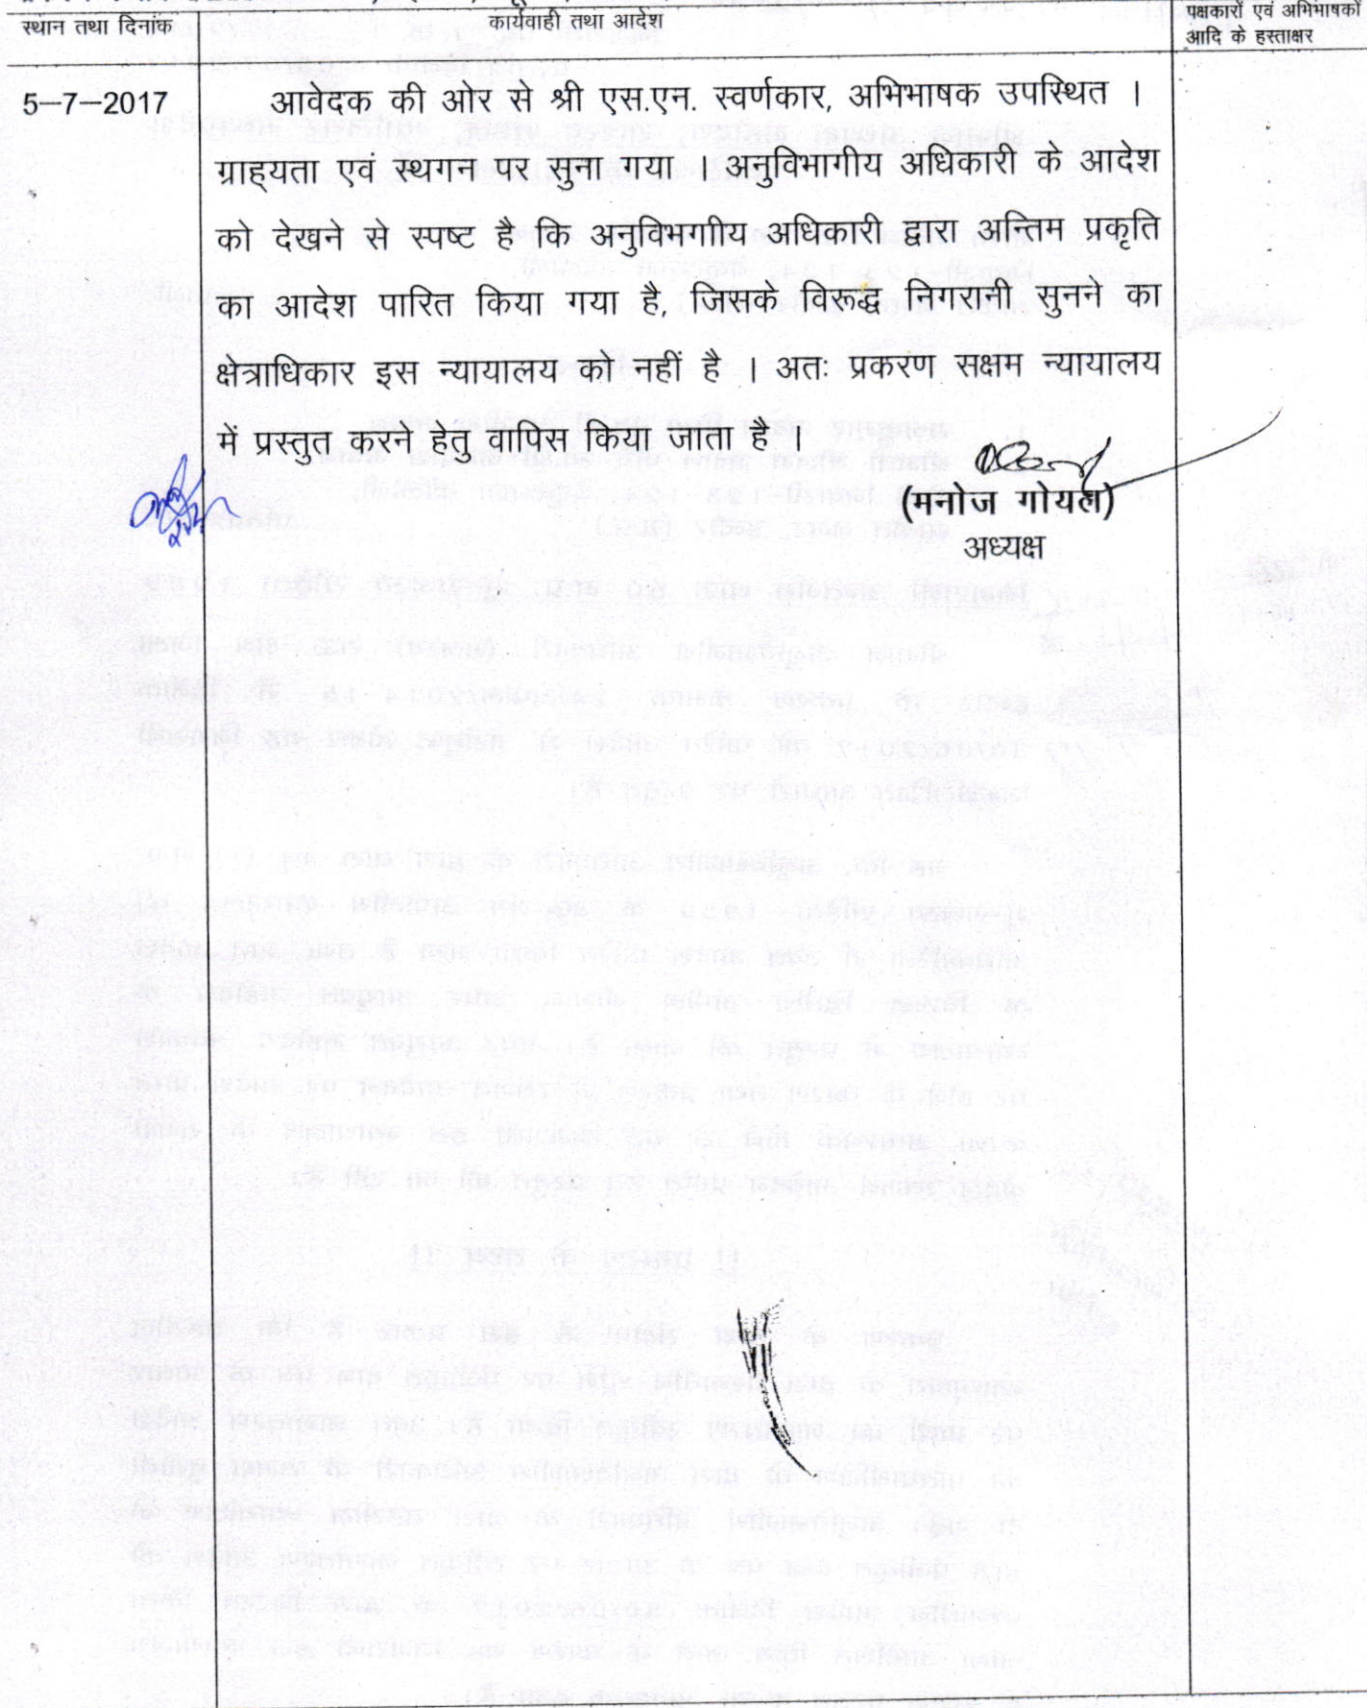 स्थान तथा दिनांक
कार्यवाही तथा आदेश
पक्षकारों एवं अभिभाषकों
आदि के हस्ताक्षर
5-7-2017
आवेदक की ओर से श्री एस.एन. स्वर्णकार, अभिभाषक उपस्थित ।
ग्राह्यता एवं स्थगन पर सुना गया । अनुविभागीय अधिकारी के आदेश
को देखने से स्पष्ट है कि अनुविभागीय अधिकारी द्वारा अन्तिम प्रकृति
का आदेश पारित किया गया है, जिसके विरूद्ध निगरानी सुनने का
क्षेत्राधिकार इस न्यायालय को नहीं है । अतः प्रकरण सक्षम न्यायालय
में प्रस्तुत करने हेतु वापिस किया जाता है ।
(मनोज गोयल)
अध्यक्ष